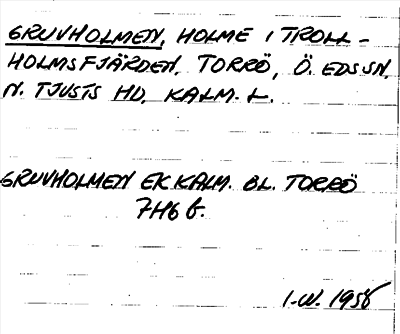 GRUVHOLMEN, HOLME I TROLL-
HOLMSFJÄRDEN, TORRÖ, Ö. EDS SN,
N. TJUSTS HD, KALM. L.
GRUVHOLMEN EK KALM. BL. TORRÖ
7H6 f.
I.W. 1958